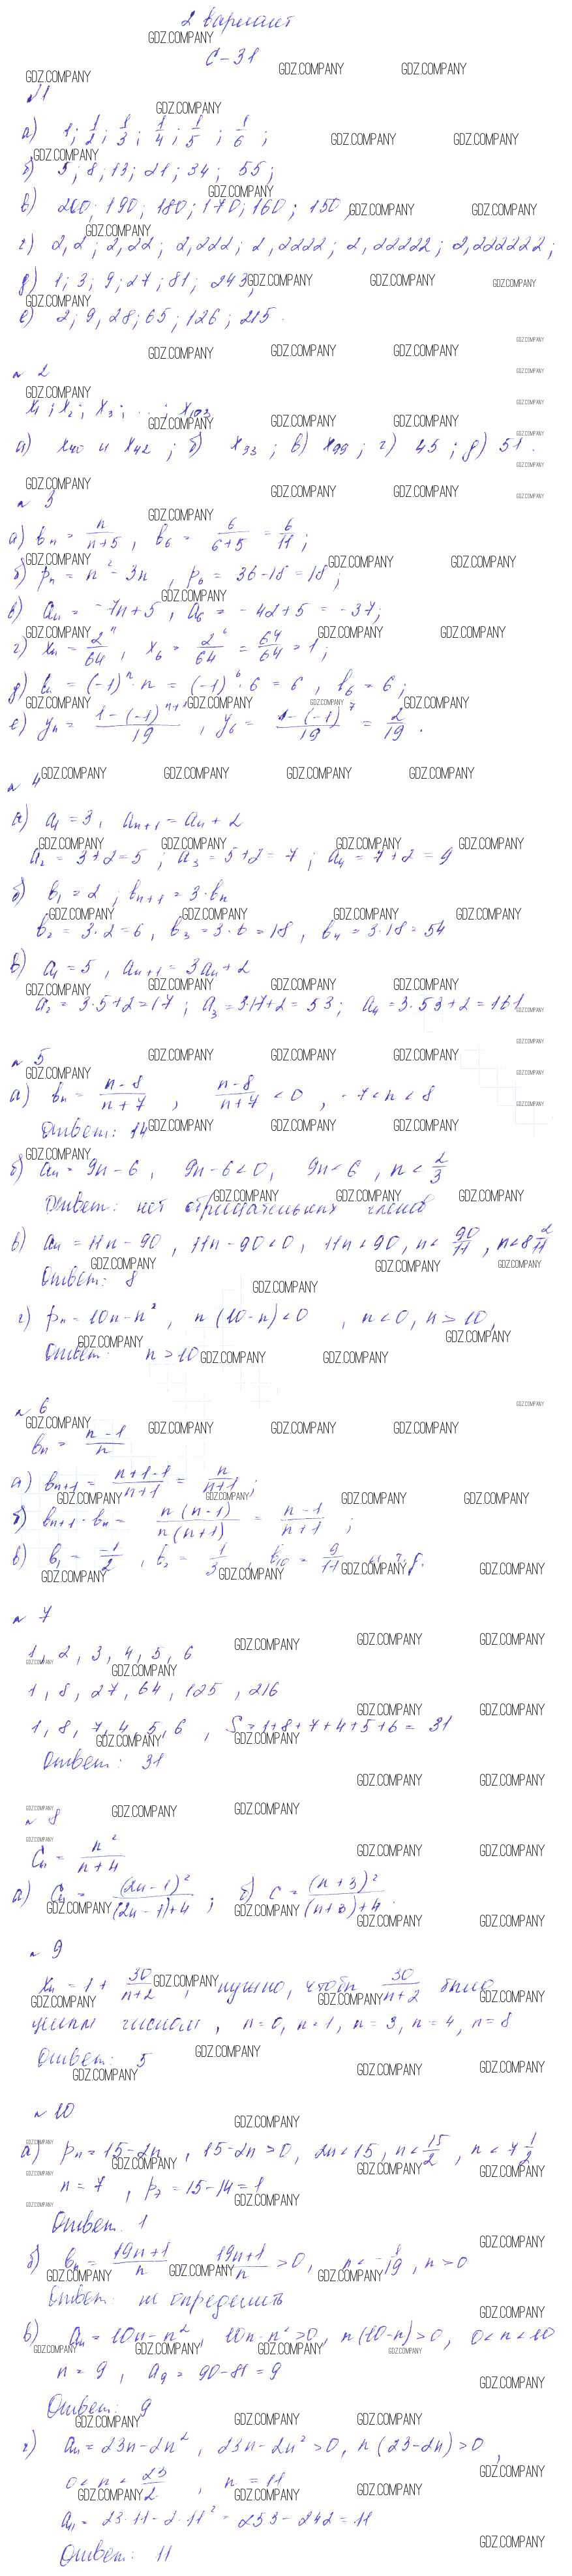 2 вариант
С-31
№1
а) 1; 1/2; 1/3; 1/4; 1/5; 1/6;
б) 5; 8; 13; 21; 34; 55;
в) 200; 190; 180; 170; 160; 150
г) 2,2; 2,22; 2,222; 2,2222; 2,22222; 2,222222;
д) 1; 3; 9; 27; 81; 243;
е) 2; 9, 28; 65; 126; 215.
№ 2
x₁; x₂; x₃; ...; x₁₀₃
а) x₄₀ и x₄₂; б) x₉₃; в) x₉₉; г) 45; д) 51.
№ 3
а) bₙ = n/(n+5), b₆ = 6/(6+5) = 6/11;
б) pₙ = n² - 3n, p₆ = 36-18 = 18;
в) aₙ = -7n+5, a₆ = -42+5 = -37;
г) xₙ = 2ⁿ/64, x₆ = 2⁶/64 = 64/64 = 1;
д) bₙ = (-1)ⁿ·n = (-1)⁶·6 = 6, b₆ = 6;
е) yₙ = (1-(-1)ⁿ⁺¹)/19, y₆ = (1-(-1)⁷)/19 = 2/19.
№ 4
а) a₁ = 3, aₙ₊₁ = aₙ + 2
a₂ = 3+2=5; a₃ = 5+2=7; a₄ = 7+2=9
б) b₁ = 2; bₙ₊₁ = 3·bₙ
b₂ = 3·2=6, b₃ = 3·6=18, b₄ = 3·18=54
в) a₁ = 5, aₙ₊₁ = 3aₙ+2
a₂ = 3·5+2=17; a₃ = 3·17+2=53; a₄ = 3·53+2=161
№ 5
а) bₙ = (n-8)/(n+7), (n-8)/(n+7) < 0, -7<n<8
Ответ: 14
б) aₙ = 9n-6, 9n-6<0, 9n<6, n<2/3
Ответ: нет отрицательных членов
в) aₙ = 11n-90, 11n-90<0, 11n<90, n<90/11, n<8 2/11
Ответ: 8
г) pₙ = 10n-n², n(10-n)<0, n<0, n>10,
Ответ: n>10
№ 6
bₙ = (n-1)/n
а) bₙ₊₁ = (n+1-1)/(n+1) = n/(n+1);
б) bₙ₊₁·bₙ = n(n-1)/n(n+1) = (n-1)/(n+1);
в) b₁ = -1/2, b₂ = 1/3, b₁₀ = 9/11 и т.д.
№ 7
1, 2, 3, 4, 5, 6
1, 8, 27, 64, 125, 216
1, 8, 7, 4, 5, 6, S = 1+8+7+4+5+6 = 31
Ответ: 31
№ 8
Cₙ = n²/(n+4)
а) Cₙ = (2n-1)²/((2n-1)+4); б) C = (n+3)²/((n+3)+4).
№ 9
xₙ = 1 + 30/(n+2), нужно, чтобы 30/(n+2) было
целым числом, n=0, n=1, n=3, n=4, n=8
Ответ: 5
№ 10
а) pₙ = 15-2n, 15-2n>0, 2n<15, n<15/2, n<7 1/2
n=7, p₇ = 15-14=1
Ответ. 1
б) bₙ = (19n+1)/n (19n+1)/n > 0, n<-1/19, n>0
Ответ: не определить
в) aₙ = 10n-n², 10n-n²>0, n(10-n)>0, 0<n<10
n=9, a₉ = 90-81=9
Ответ: 9
г) aₙ = 23n-2n², 23n-2n²>0, n(23-2n)>0,
0<n<23/2, n=11
a₁₁ = 23·11-2·11² = 253-242=11
Ответ: 11
GDZ.COMPANY